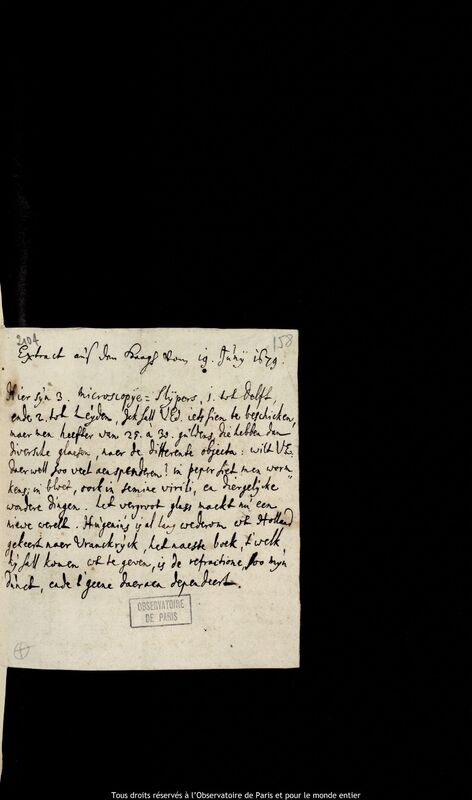 2104
158
Extract aus dem Haags vom 19. Juny 1679.
Hier syn 3. microscopye-Slypers, 1. tot Delft,
ende 2. tot Leyden, Ick sall UEd. iets sien te beschicken,
maer men heefter van 25. a 30. guldens, die hebben dan
diversche glasen, naer de differente objecta: wilt UE.
daer well soo veel aen spenderen? in peper siet men worm
kens; in bloet, oock in semine virili, en diergelycke
wondere dingen. het vergroot glass maeckt nu een
nieve werelt. Hugenius is al lang wederom wt Holland
gekeert naer Vranckryck, het naeste boek, t'welk
hy sall komen wt te geven, is de refractione, soo myn
dünct, ende t'geene daeraen dependeert.
OBSERVATOIRE
DE PARIS
Tous droits réservés à l'Observatoire de Paris et pour le monde entier